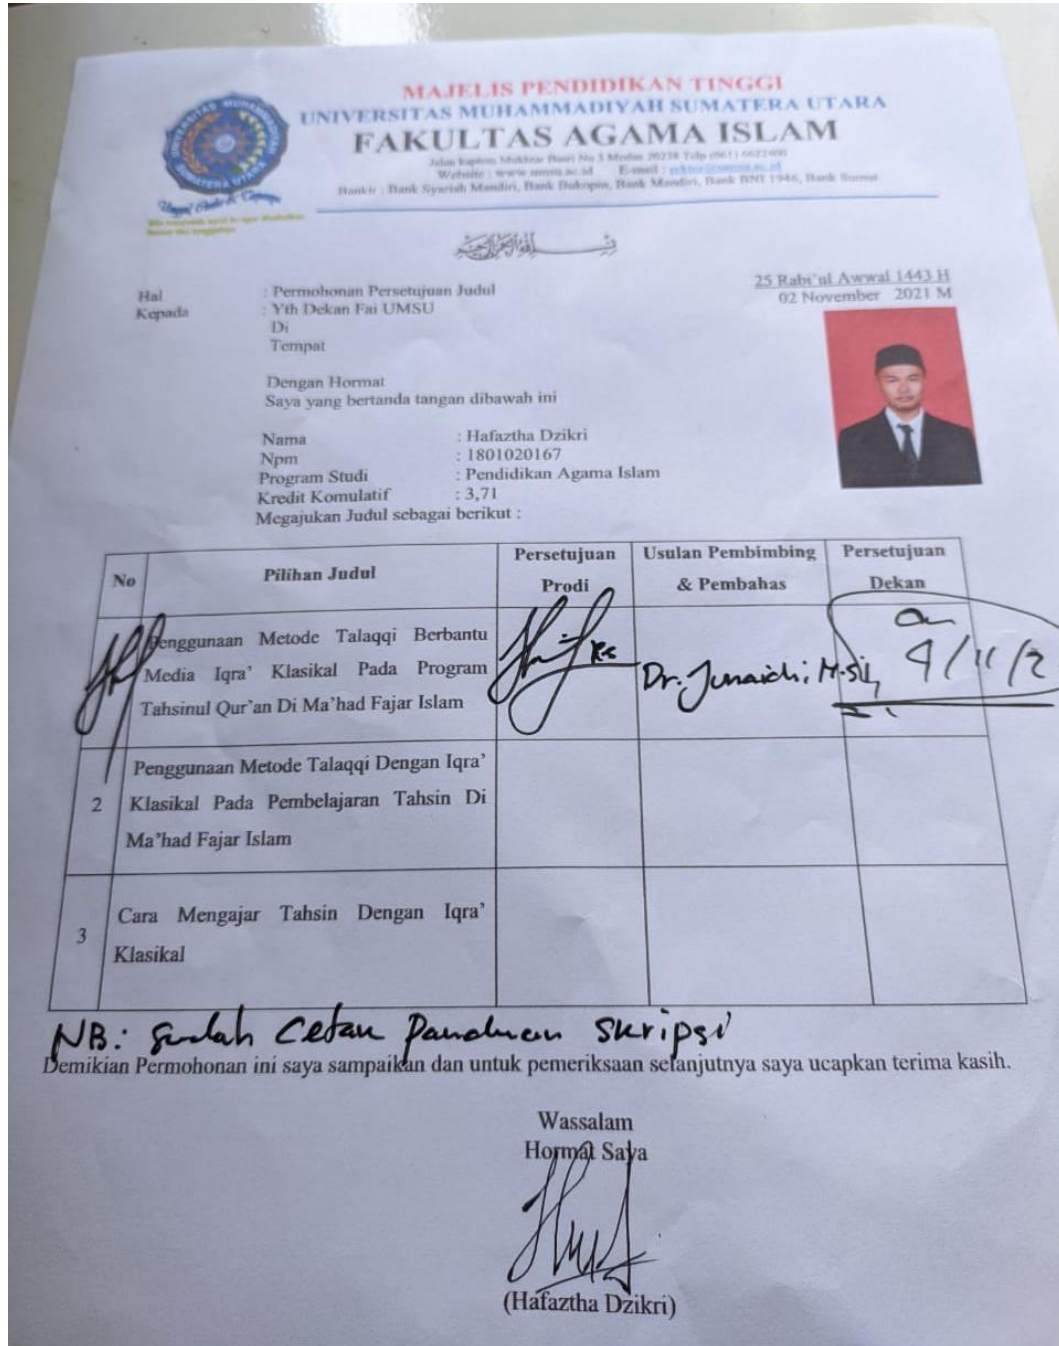 MAJELIS PENDIDIKAN TINGGI
UNIVERSITAS MUHAMMADIYAH SUMATERA UTARA
FAKULTAS AGAMA ISLAM
Jalan kapten Mukhtar Basri No 3 Medan 20238 Telp (061) 6622400
Website : www.umsu.ac.id E-mail : rektor@umsu.ac.id
Bankir : Bank Syariah Mandiri, Bank Bukopin, Bank Mandiri, Bank BNI 1946, Bank Sumut
UNIVERSITAS MUHAMMADIYAH
SUMATERA UTARA
Unggul Cerdas & Terpercaya
25 Rabi'ul Awwal 1443 H
02 November 2021 M
Hal : Permohonan Persetujuan Judul
Kepada : Yth Dekan Fai UMSU
Di
Tempat
Dengan Hormat
Saya yang bertanda tangan dibawah ini
Nama : Hafaztha Dzikri
Npm : 1801020167
Program Studi : Pendidikan Agama Islam
Kredit Komulatif : 3,71
Megajukan Judul sebagai berikut :
No Pilihan Judul Persetujuan Prodi Usulan Pembimbing & Pembahas Persetujuan Dekan
Penggunaan Metode Talaqqi Berbantu
Media Iqra' Klasikal Pada Program
Tahsinul Qur'an Di Ma'had Fajar Islam
Dr. Junaidi, M.Si,
9/11/2
2 Penggunaan Metode Talaqqi Dengan Iqra'
Klasikal Pada Pembelajaran Tahsin Di
Ma'had Fajar Islam
3 Cara Mengajar Tahsin Dengan Iqra'
Klasikal
NB: Sudah Cetak Panduan Skripsi
Demikian Permohonan ini saya sampaikan dan untuk pemeriksaan selanjutnya saya ucapkan terima kasih.
Wassalam
Hormat Saya
(Hafaztha Dzikri)